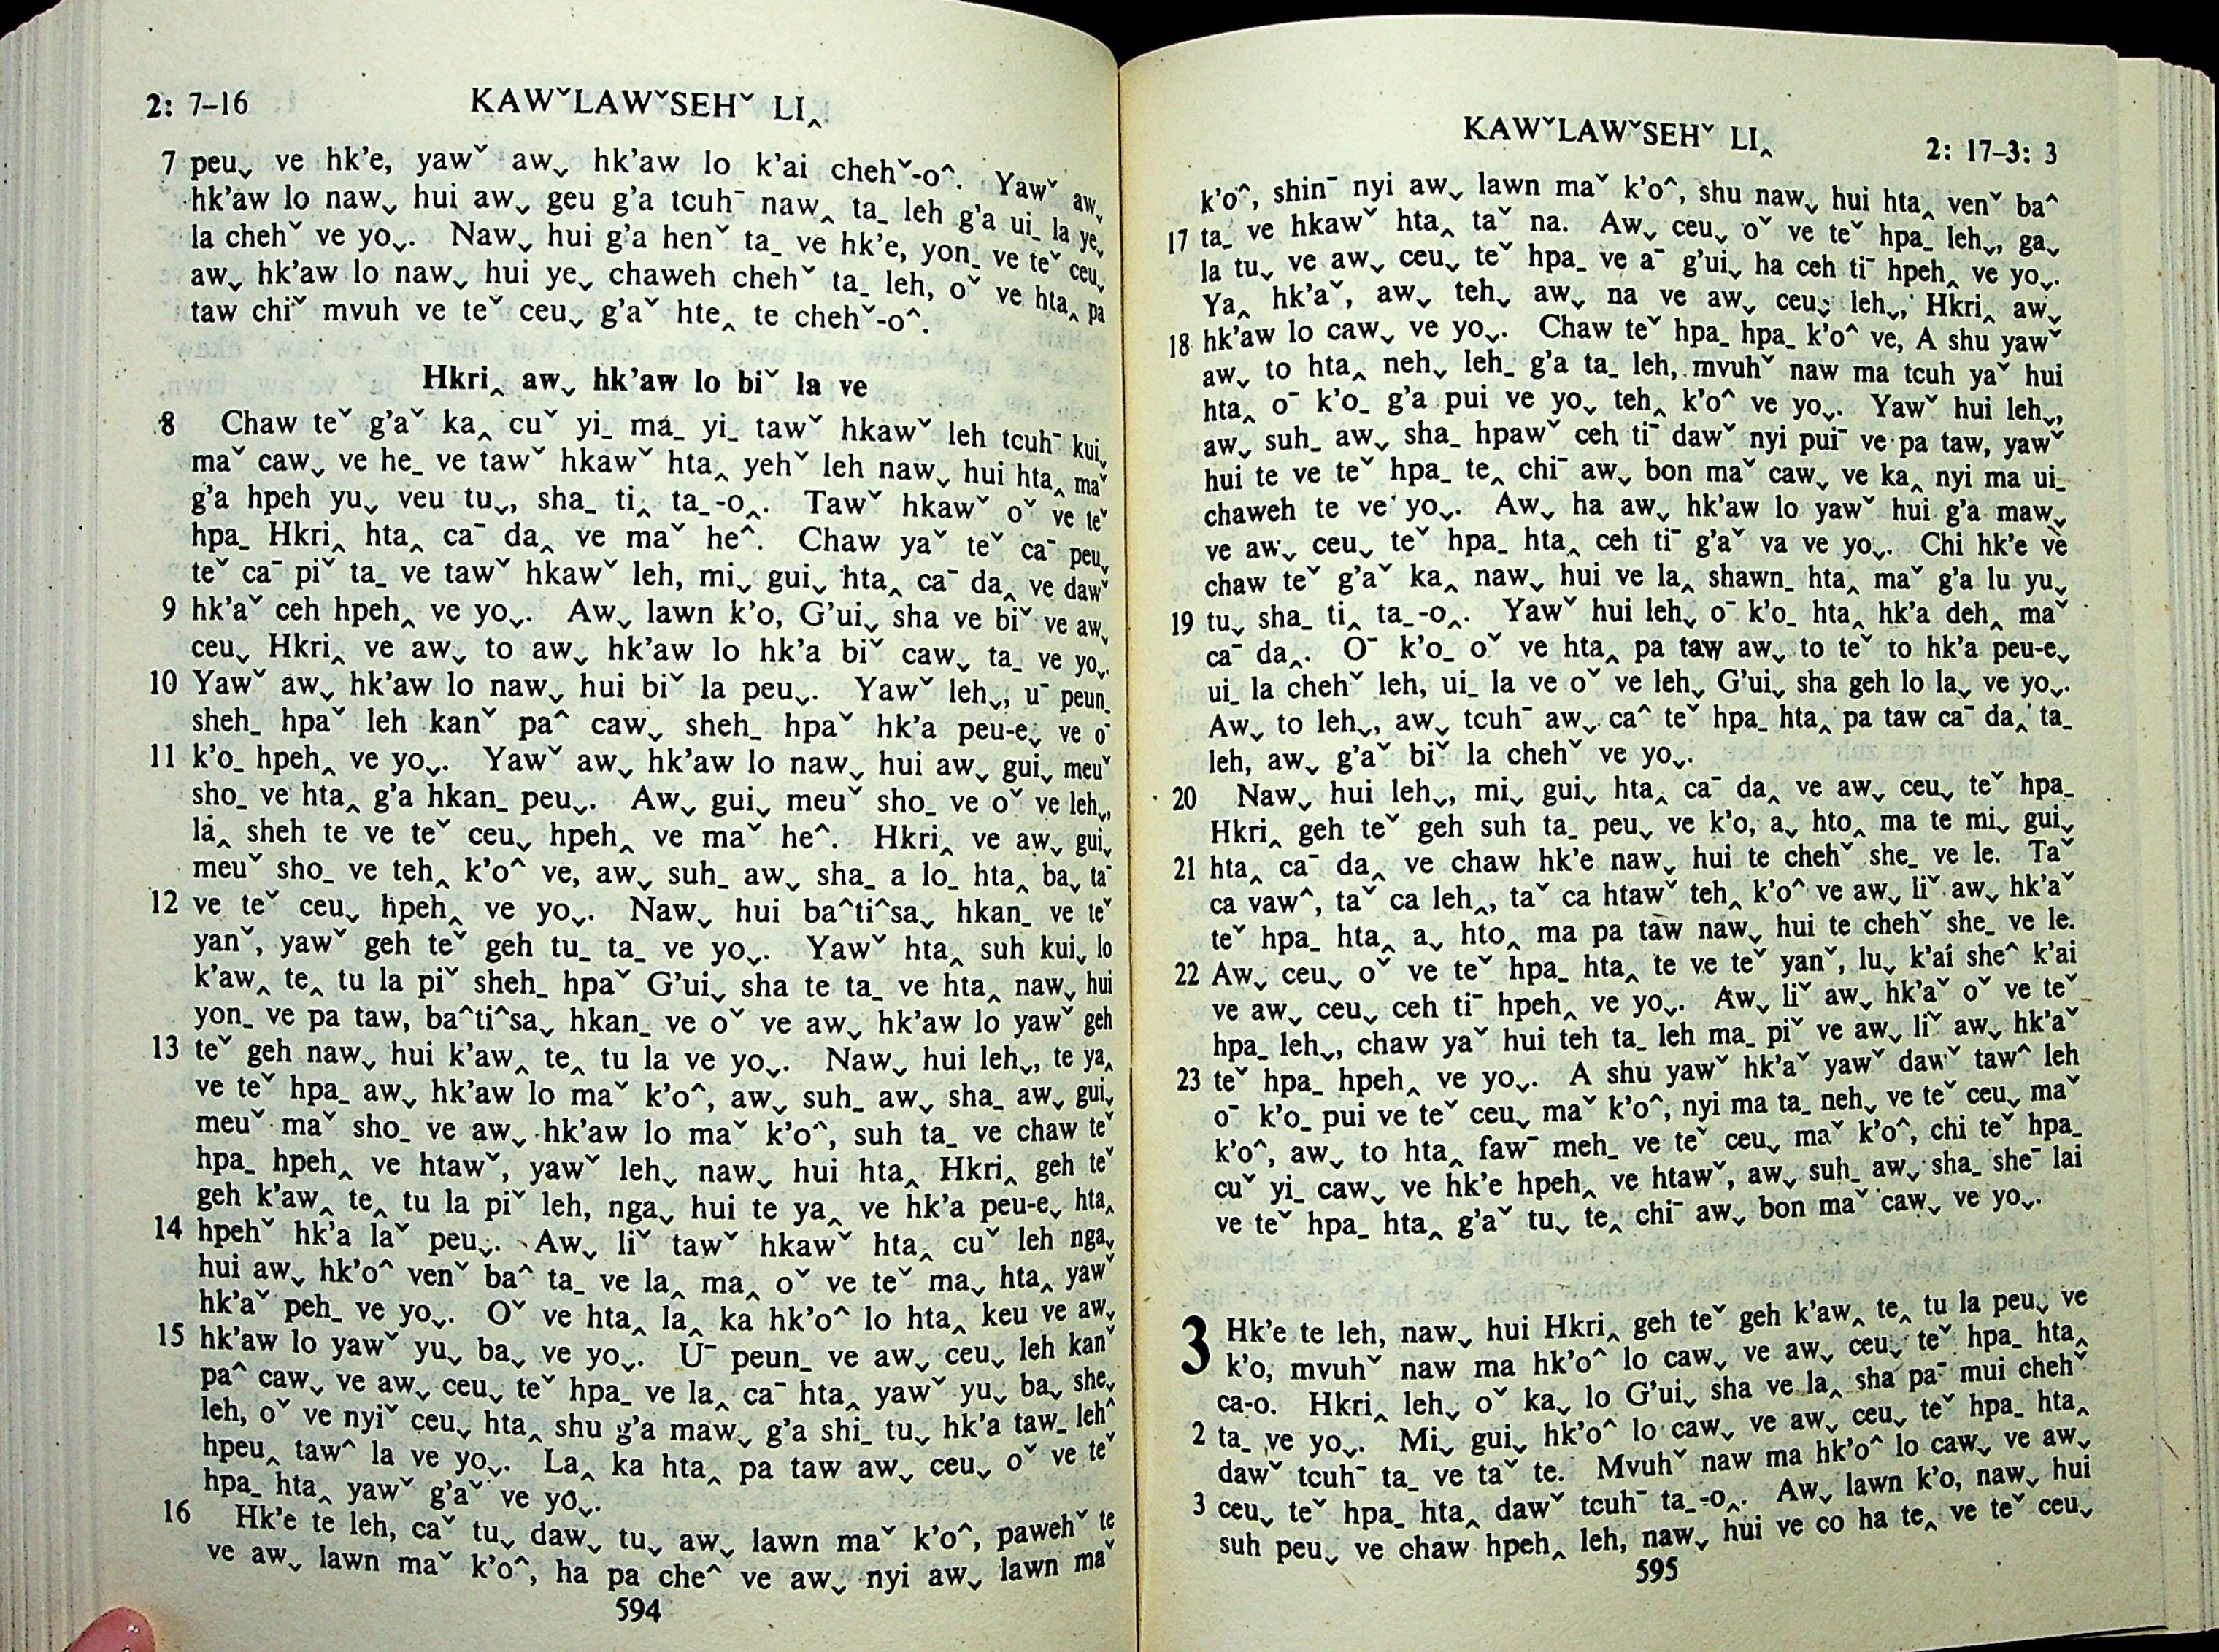 2: 7–16
KAWˇLAWˇSEHˇ LI‸
7 peuˬ ve hk’e, yawˇ awˬ hk’aw lo k’ai chehˇ-o^. Yawˇ awˬ
hk’aw lo nawˬ hui awˬ geu g’a tcuh¯ naw‸ ta_ leh g’a ui_ la yeˬ
la chehˇ ve yoˬ. Nawˬ hui g’a henˇ ta_ ve hk’e, yon_ ve teˇ ceuˬ
awˬ hk’aw lo nawˬ hui yeˬ chaweh chehˇ ta_ leh, oˇ ve hta‸ pa
taw chiˇ mvuh ve teˇ ceuˬ g’aˇ hte‸ te chehˇ-o^.
Hkri‸ awˬ hk’aw lo biˇ la ve
8 Chaw teˇ g’aˇ ka‸ cuˇ yi_ ma_ yi_ tawˇ hkawˇ leh tcuh¯ kuiˬ
maˇ cawˬ ve he_ ve tawˇ hkawˇ hta‸ yehˇ leh nawˬ hui hta‸ maˇ
g’a hpeh yuˬ veu tuˬ, sha_ ti‸ ta_-o‸. Tawˇ hkawˇ oˇ ve teˇ
hpa_ Hkri‸ hta‸ ca¯ da‸ ve maˇ he^. Chaw yaˇ teˇ ca¯ peuˬ
teˇ ca¯ piˇ ta_ ve tawˇ hkawˇ leh, miˬ guiˬ hta‸ ca¯ da‸ ve dawˇ
9 hk’aˇ ceh hpeh‸ ve yoˬ. Awˬ lawn k’o, G’uiˬ sha ve biˇ ve awˬ
ceuˬ Hkri‸ ve awˬ to awˬ hk’aw lo hk’a biˇ cawˬ ta_ ve yoˬ.
10 Yawˇ awˬ hk’aw lo nawˬ hui biˇ la peuˬ. Yawˇ lehˬ, u¯ peun_
sheh_ hpaˇ leh kanˇ pa^ cawˬ sheh_ hpaˇ hk’a peu-eˬ ve o¯
11 k’o_ hpeh‸ ve yoˬ. Yawˇ awˬ hk’aw lo nawˬ hui awˬ guiˬ meuˇ
sho_ ve hta‸ g’a hkan_ peuˬ. Awˬ guiˬ meuˇ sho_ ve oˇ ve lehˬ,
la‸ sheh te ve teˇ ceuˬ hpeh‸ ve maˇ he^. Hkri‸ ve awˬ guiˬ
meuˇ sho_ ve teh‸ k’o^ ve, awˬ suh_ awˬ sha_ a lo_ hta‸ baˬ ta¯
12 ve teˇ ceuˬ hpeh‸ ve yoˬ. Nawˬ hui ba^ti^saˬ hkan_ ve teˇ
yanˇ, yawˇ geh teˇ geh tu_ ta_ ve yoˬ. Yawˇ hta‸ suh kuiˬ lo
k’aw‸ te‸ tu la piˇ sheh_ hpaˇ G’uiˬ sha te ta_ ve hta‸ nawˬ hui
yon_ ve pa taw, ba^ti^saˬ hkan_ ve oˇ ve awˬ hk’aw lo yawˇ geh
13 teˇ geh nawˬ hui k’aw‸ te‸ tu la ve yoˬ. Nawˬ hui lehˬ, te ya‸
ve teˇ hpa_ awˬ hk’aw lo maˇ k’o^, awˬ suh_ awˬ sha_ awˬ guiˬ
meuˇ maˇ sho_ ve awˬ hk’aw lo maˇ k’o^, suh ta_ ve chaw teˇ
hpa_ hpeh‸ ve htawˇ, yawˇ lehˬ nawˬ hui hta‸ Hkri‸ geh teˇ
geh k’aw‸ te‸ tu la piˇ leh, ngaˬ hui te ya‸ ve hk’a peu-eˬ hta‸
14 hpehˇ hk’a laˇ peuˬ. Awˬ liˇ tawˇ hkawˇ hta‸ cuˇ leh ngaˬ
hui awˬ hk’o^ venˇ ba^ ta_ ve la‸ ma‸ oˇ ve teˇ maˬ hta‸ yawˇ
hk’aˇ peh_ ve yoˬ. Oˇ ve hta‸ la‸ ka hk’o^ lo hta‸ keu ve awˬ
15 hk’aw lo yawˇ yuˬ baˬ ve yoˬ. U¯ peun_ ve awˬ ceuˬ leh kanˇ
pa^ cawˬ ve awˬ ceuˬ teˇ hpa_ ve la‸ ca¯ hta‸ yawˇ yuˬ baˬ sheˬ
leh, oˇ ve nyiˇ ceuˬ hta‸ shu g’a mawˬ g’a shi_ tuˬ hk’a taw_ leh^
hpeu‸ taw^ la ve yoˬ. La‸ ka hta‸ pa taw awˬ ceuˬ oˇ ve teˇ
hpa_ hta‸ yawˇ g’aˇ ve yoˬ.
16 Hk’e te leh, caˇ tuˬ dawˬ tuˬ awˬ lawn maˇ k’o^, pawehˇ te
ve awˬ lawn maˇ k’o^, ha pa che^ ve awˬ nyi awˬ lawn maˇ
594
KAWˇLAWˇSEHˇ LI‸
2: 17–3: 3
k’o^, shin¯ nyi awˬ lawn maˇ k’o^, shu nawˬ hui hta‸ venˇ ba^
17 ta_ ve hkawˇ hta‸ taˇ na. Awˬ ceuˬ oˇ ve teˇ hpa_ lehˬ, gaˬ
la tuˬ ve awˬ ceuˬ teˇ hpa_ ve a¯ g’uiˬ ha ceh ti¯ hpeh‸ ve yoˬ.
Ya‸ hk’aˇ, awˬ tehˬ awˬ na ve awˬ ceuˬ lehˬ, Hkri‸ awˬ
18 hk’aw lo cawˬ ve yoˬ. Chaw teˇ hpa_ hpa_ k’o^ ve, A shu yawˇ
awˬ to hta‸ nehˬ leh_ g’a ta_ leh, mvuhˇ naw ma tcuh yaˇ hui
hta‸ o¯ k’o_ g’a pui ve yoˬ teh‸ k’o^ ve yoˬ. Yawˇ hui lehˬ,
awˬ suh_ awˬ sha_ hpawˇ ceh ti¯ dawˇ nyi pui¯ ve pa taw, yawˇ
hui te ve teˇ hpa_ te‸ chi¯ awˬ bon maˇ cawˬ ve ka‸ nyi ma ui_
chaweh te ve yoˬ. Awˬ ha awˬ hk’aw lo yawˇ hui g’a mawˬ
ve awˬ ceuˬ teˇ hpa_ hta‸ ceh ti¯ g’aˇ va ve yoˬ. Chi hk’e ve
chaw teˇ g’aˇ ka‸ nawˬ hui ve la‸ shawn_ hta‸ maˇ g’a lu yuˬ
19 tuˬ sha_ ti‸ ta_-o‸. Yawˇ hui lehˬ o¯ k’o_ hta‸ hk’a deh‸ maˇ
ca¯ da‸. O¯ k’o_ oˇ ve hta‸ pa taw awˬ to teˇ to hk’a peu-eˬ
ui_ la chehˇ leh, ui_ la ve oˇ ve lehˬ G’uiˬ sha geh lo laˬ ve yoˬ.
Awˬ to lehˬ, awˬ tcuh¯ awˬ ca^ teˇ hpa_ hta‸ pa taw ca¯ da‸ ta_
leh, awˬ g’aˇ biˇ la chehˇ ve yoˬ.
20 Nawˬ hui lehˬ, miˬ guiˬ hta‸ ca¯ da‸ ve awˬ ceuˬ teˇ hpa_
Hkri‸ geh teˇ geh suh ta_ peuˬ ve k’o, aˬ hto‸ ma te miˬ guiˬ
21 hta‸ ca¯ da‸ ve chaw hk’e nawˬ hui te chehˇ she_ ve le. Taˇ
ca vaw^, taˇ ca leh‸, taˇ ca htawˇ teh‸ k’o^ ve awˬ liˇ awˬ hk’aˇ
teˇ hpa_ hta‸ aˬ hto‸ ma pa taw nawˬ hui te chehˇ she_ ve le.
22 Awˬ ceuˬ oˇ ve teˇ hpa_ hta‸ te ve teˇ yanˇ, luˬ k’ai she^ k’ai
ve awˬ ceuˬ ceh ti¯ hpeh‸ ve yoˬ. Awˬ liˇ awˬ hk’aˇ oˇ ve teˇ
hpa_ lehˬ, chaw yaˇ hui teh ta_ leh ma_ piˇ ve awˬ liˇ awˬ hk’aˇ
23 teˇ hpa_ hpeh‸ ve yoˬ. A shu yawˇ hk’aˇ yawˇ dawˇ taw^ leh
o¯ k’o_ pui ve teˇ ceuˬ maˇ k’o^, nyi ma ta_ nehˬ ve teˇ ceuˬ maˇ
k’o^, awˬ to hta‸ faw¯ meh_ ve teˇ ceuˬ maˇ k’o^, chi teˇ hpa_
cuˇ yi_ cawˬ ve hk’e hpeh‸ ve htawˇ, awˬ suh_ awˬ sha_ she¯ lai
ve teˇ hpa_ hta‸ g’aˇ tuˬ te‸ chi¯ awˬ bon maˇ cawˬ ve yoˬ.
3 Hk’e te leh, nawˬ hui Hkri‸ geh teˇ geh k’aw‸ te‸ tu la peuˬ ve
k’o, mvuhˇ naw ma hk’o^ lo cawˬ ve awˬ ceuˬ teˇ hpa_ hta‸
ca-o. Hkri‸ lehˬ oˇ ka‸ lo G’uiˬ sha ve la‸ sha pa¯ mui chehˇ
2 ta_ ve yoˬ. Miˬ guiˬ hk’o^ lo cawˬ ve awˬ ceuˬ teˇ hpa_ hta‸
dawˇ tcuh¯ ta_ ve taˇ te. Mvuhˇ naw ma hk’o^ lo cawˬ ve awˬ
3 ceuˬ teˇ hpa_ hta‸ dawˇ tcuh¯ ta_-o‸. Awˬ lawn k’o, nawˬ hui
suh peuˬ ve chaw hpeh‸ leh, nawˬ hui ve co ha te‸ ve teˇ ceuˬ
595